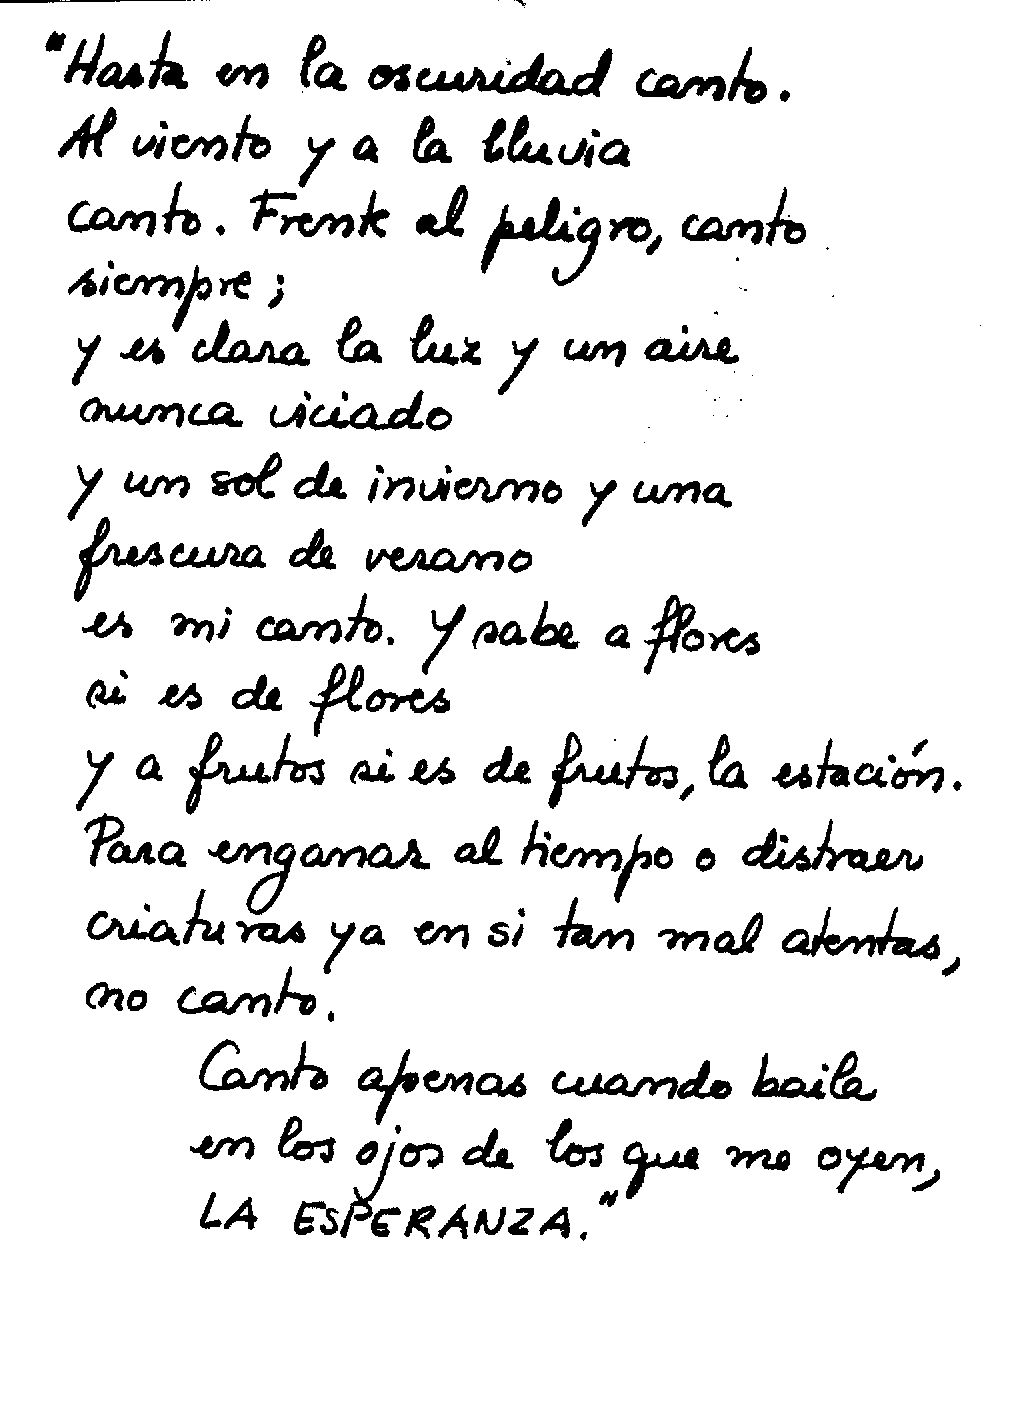 "Hasta en la oscuridad canto.
Al viento y a la lluvia
canto. Frente al peligro, canto
siempre;
y es clara la luz y un aire
nunca viciado
y un sol de invierno y una
frescura de verano
es mi canto. Y sabe a flores
si es de flores
y a frutos si es de frutos, la estación.
Para enganar al tiempo o distraer
criaturas ya en si tan mal atentas,
no canto.
Canto apenas cuando baila
en los ojos de los que me oyen,
LA ESPERANZA."